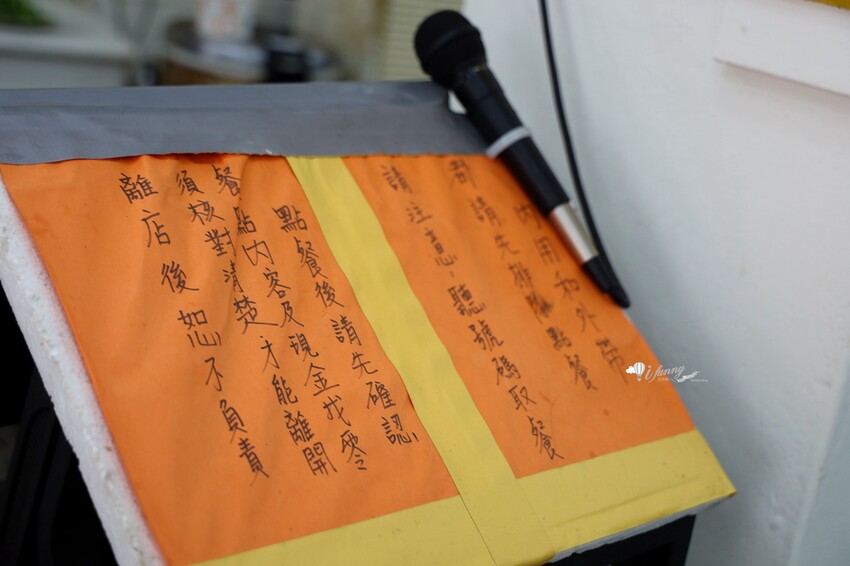 內用和外帶
都請先排隊點餐
請注意，聽號碼取餐
點餐後請先確認
餐點內容及現金找零
須核對清楚才能離開
離店後恕不負責
i funny